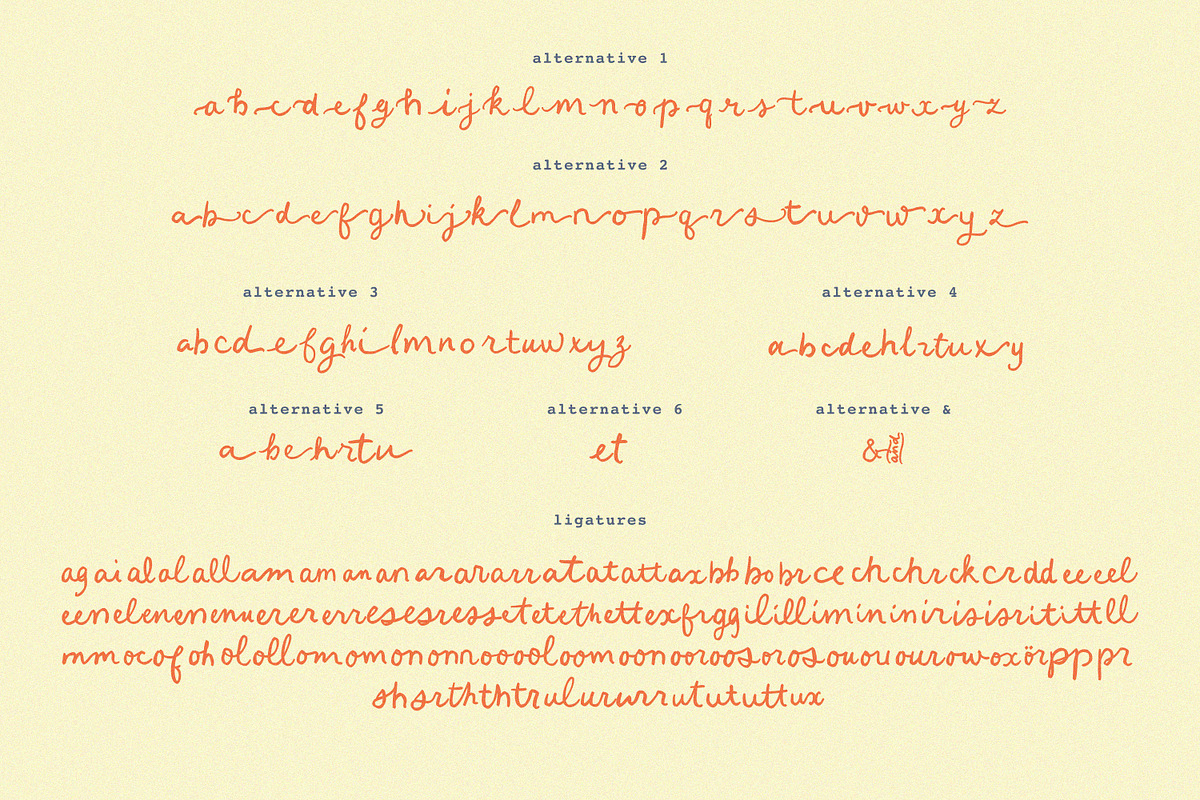 alternative 1
abcdefghijklmnopqrstuvwxyz
alternative 2
abcdefghijklmnopqrstuvwxyz
alternative 3 alternative 4
abcdefghilmnortuwxyz abcdehlrtuxy
alternative 5 alternative 6 alternative &
abehrtu et & and
ligatures
agaialalallamamananarararratatattaxbbbobrcechchrckcrddeeeel
eenelenenenuerererresesressetetethettexfrggilillimininirisisrititittll
mmocofoholollomomononnooooloomoonooroosorosouououruowoxörpppr
shsrththtrulururrutututtux